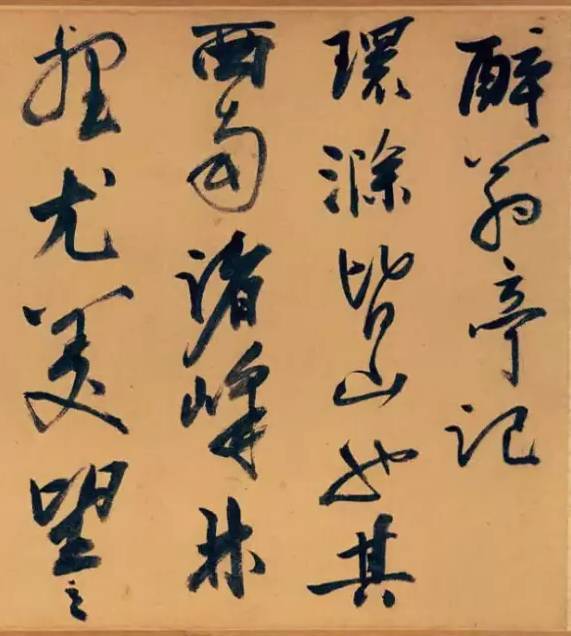 醉翁亭記
環滁皆山也其
西南諸峰林
壑尤美望之